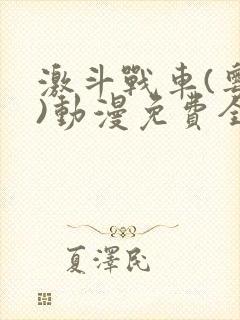 激斗戰車(
)動漫免費全
夏澤民